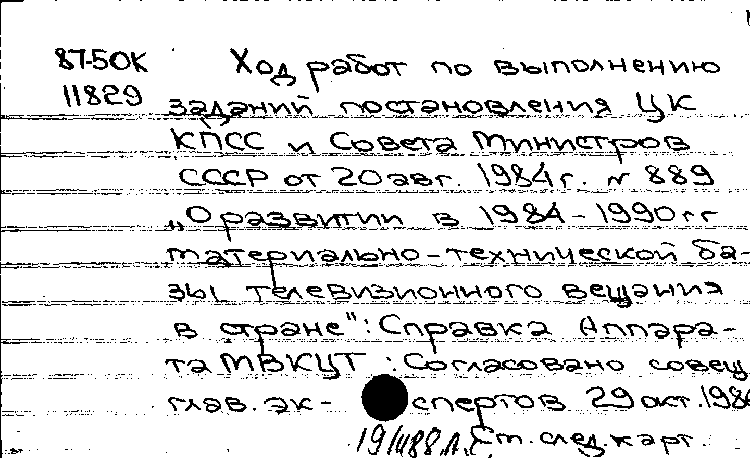 87-5OK Ход работ по выполнению
11829 заданий постановления ЦК
КПСС и Совета Министров
СССР от 20 авг. 1984 г. № 889
„О развитии в 1984-1990 гг
материально-технической ба-
зы телевизионного вещания
в стране": Справка Аппара-
та МВКЦТ : Согласовано совещ
глав. эк- спертов 29 окт. 198
См. след. карт.